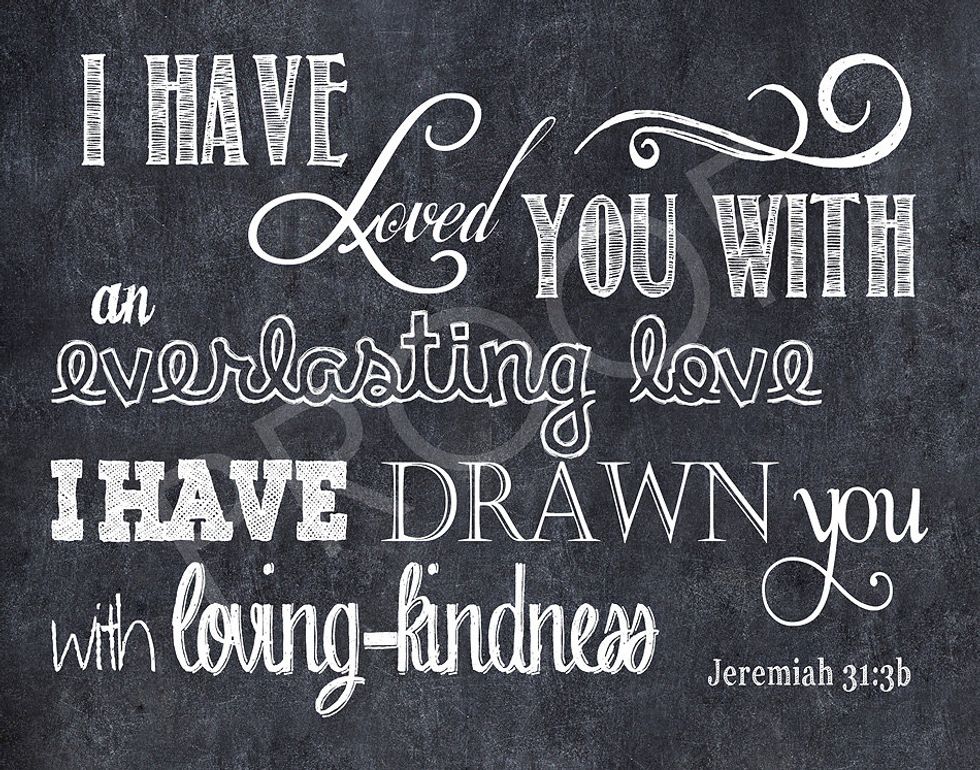 I HAVE
Loved YOU WITH
an
everlasting love
I HAVE DRAWN you
with loving-kindness
Jeremiah 31:3b
PROOF